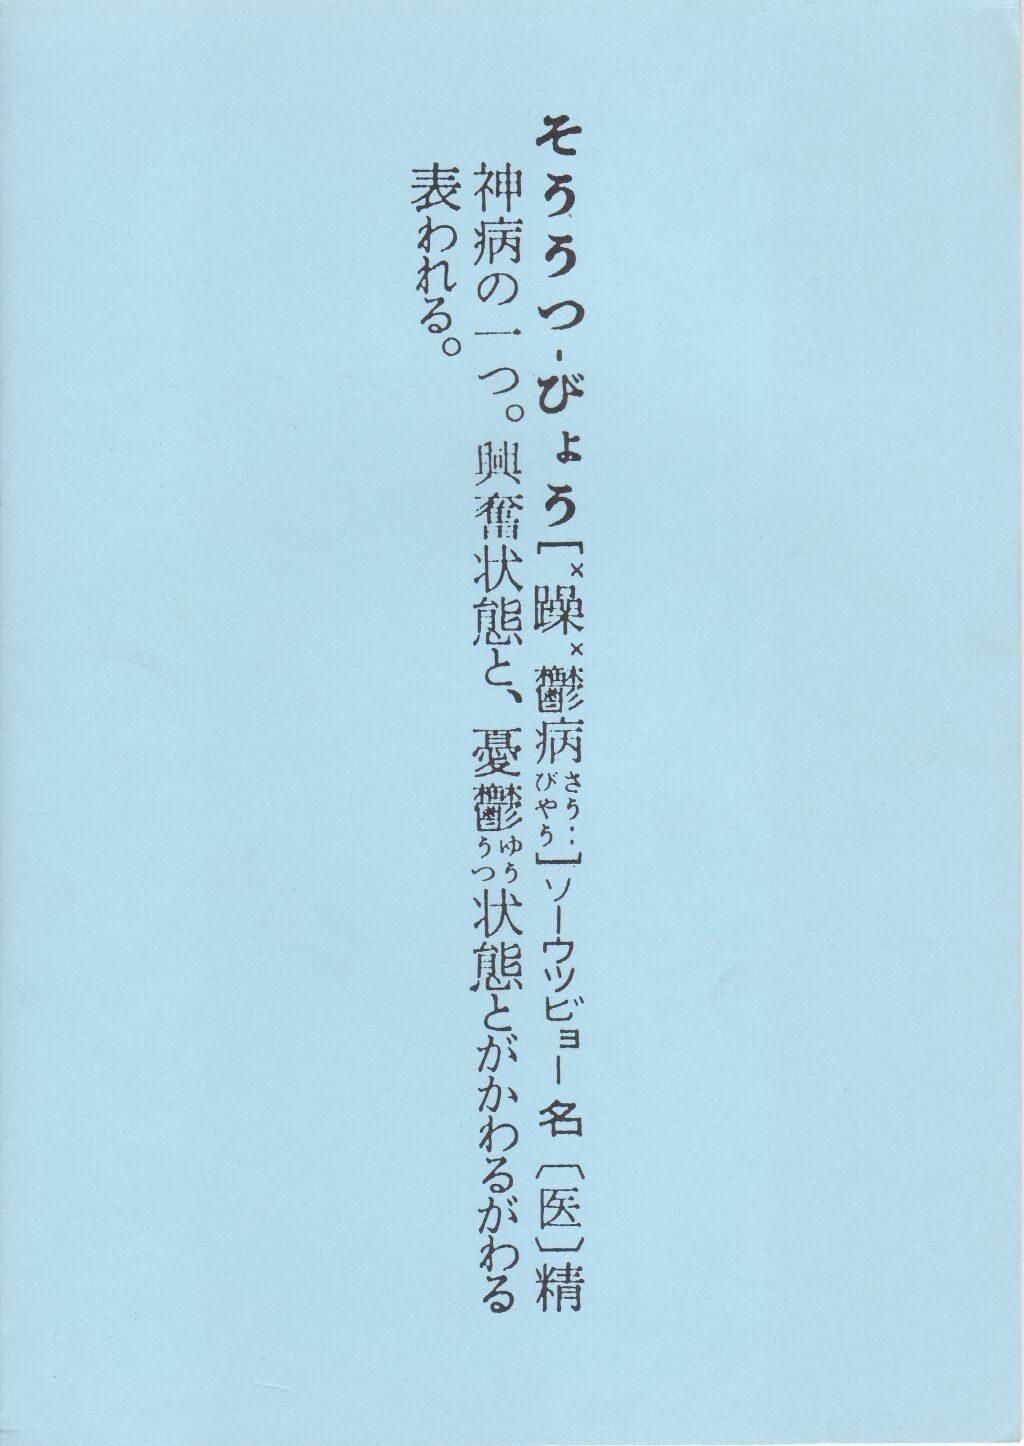 そううつ-びょう[×躁×鬱病さう‥びやう]ソーウツビョー名〔医〕精
神病の一つ。興奮状態と、憂鬱ゆううつ状態とがかわるがわる
表われる。